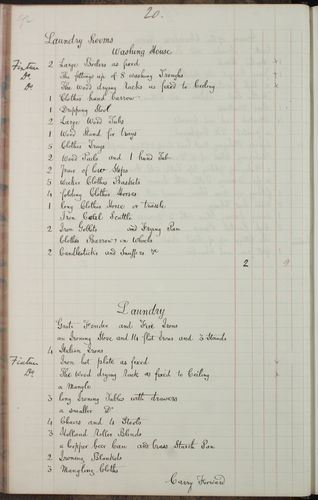 20.
Laundry Rooms
Washing House
Fixture 2 Large Boilers as fixed
Do The fittings up of 8 washing Troughs
Do The wood drying racks as fixed to Ceiling
1 Clothes hand barrow
1 Dripping Stool
2 Large Wood Tubs
1 Wood Stand for trays
5 Clothes Trays
2 Wood Pails and 1 hand Tub
2 Pair of low Steps
5 Wicker Clothes Baskets
4 folding Clothes Horses
1 long Clothes Horse or trussle
Iron Coal Scuttle
2 Iron and Frying Pan
Clothes Barrow on Wheels
2 Candlesticks and Snuffers &
2 9
Laundry
Grate Fender and Fire Irons
an Ironing Stove and 14 flat Irons and 3 Stands
4 Italian Irons
Fixture Iron hot plate as fixed
Do The Wood drying Rack as fixed to Ceiling
a Mangle
3 long Ironing Tables with drawers
a smaller Do
4 Chairs and 4 Stools
3 Holland Roller Blinds
a Copper beer Can and brass Starch Pan
2 Ironing Blankets
3 Mangling Cloths
Carry Forward